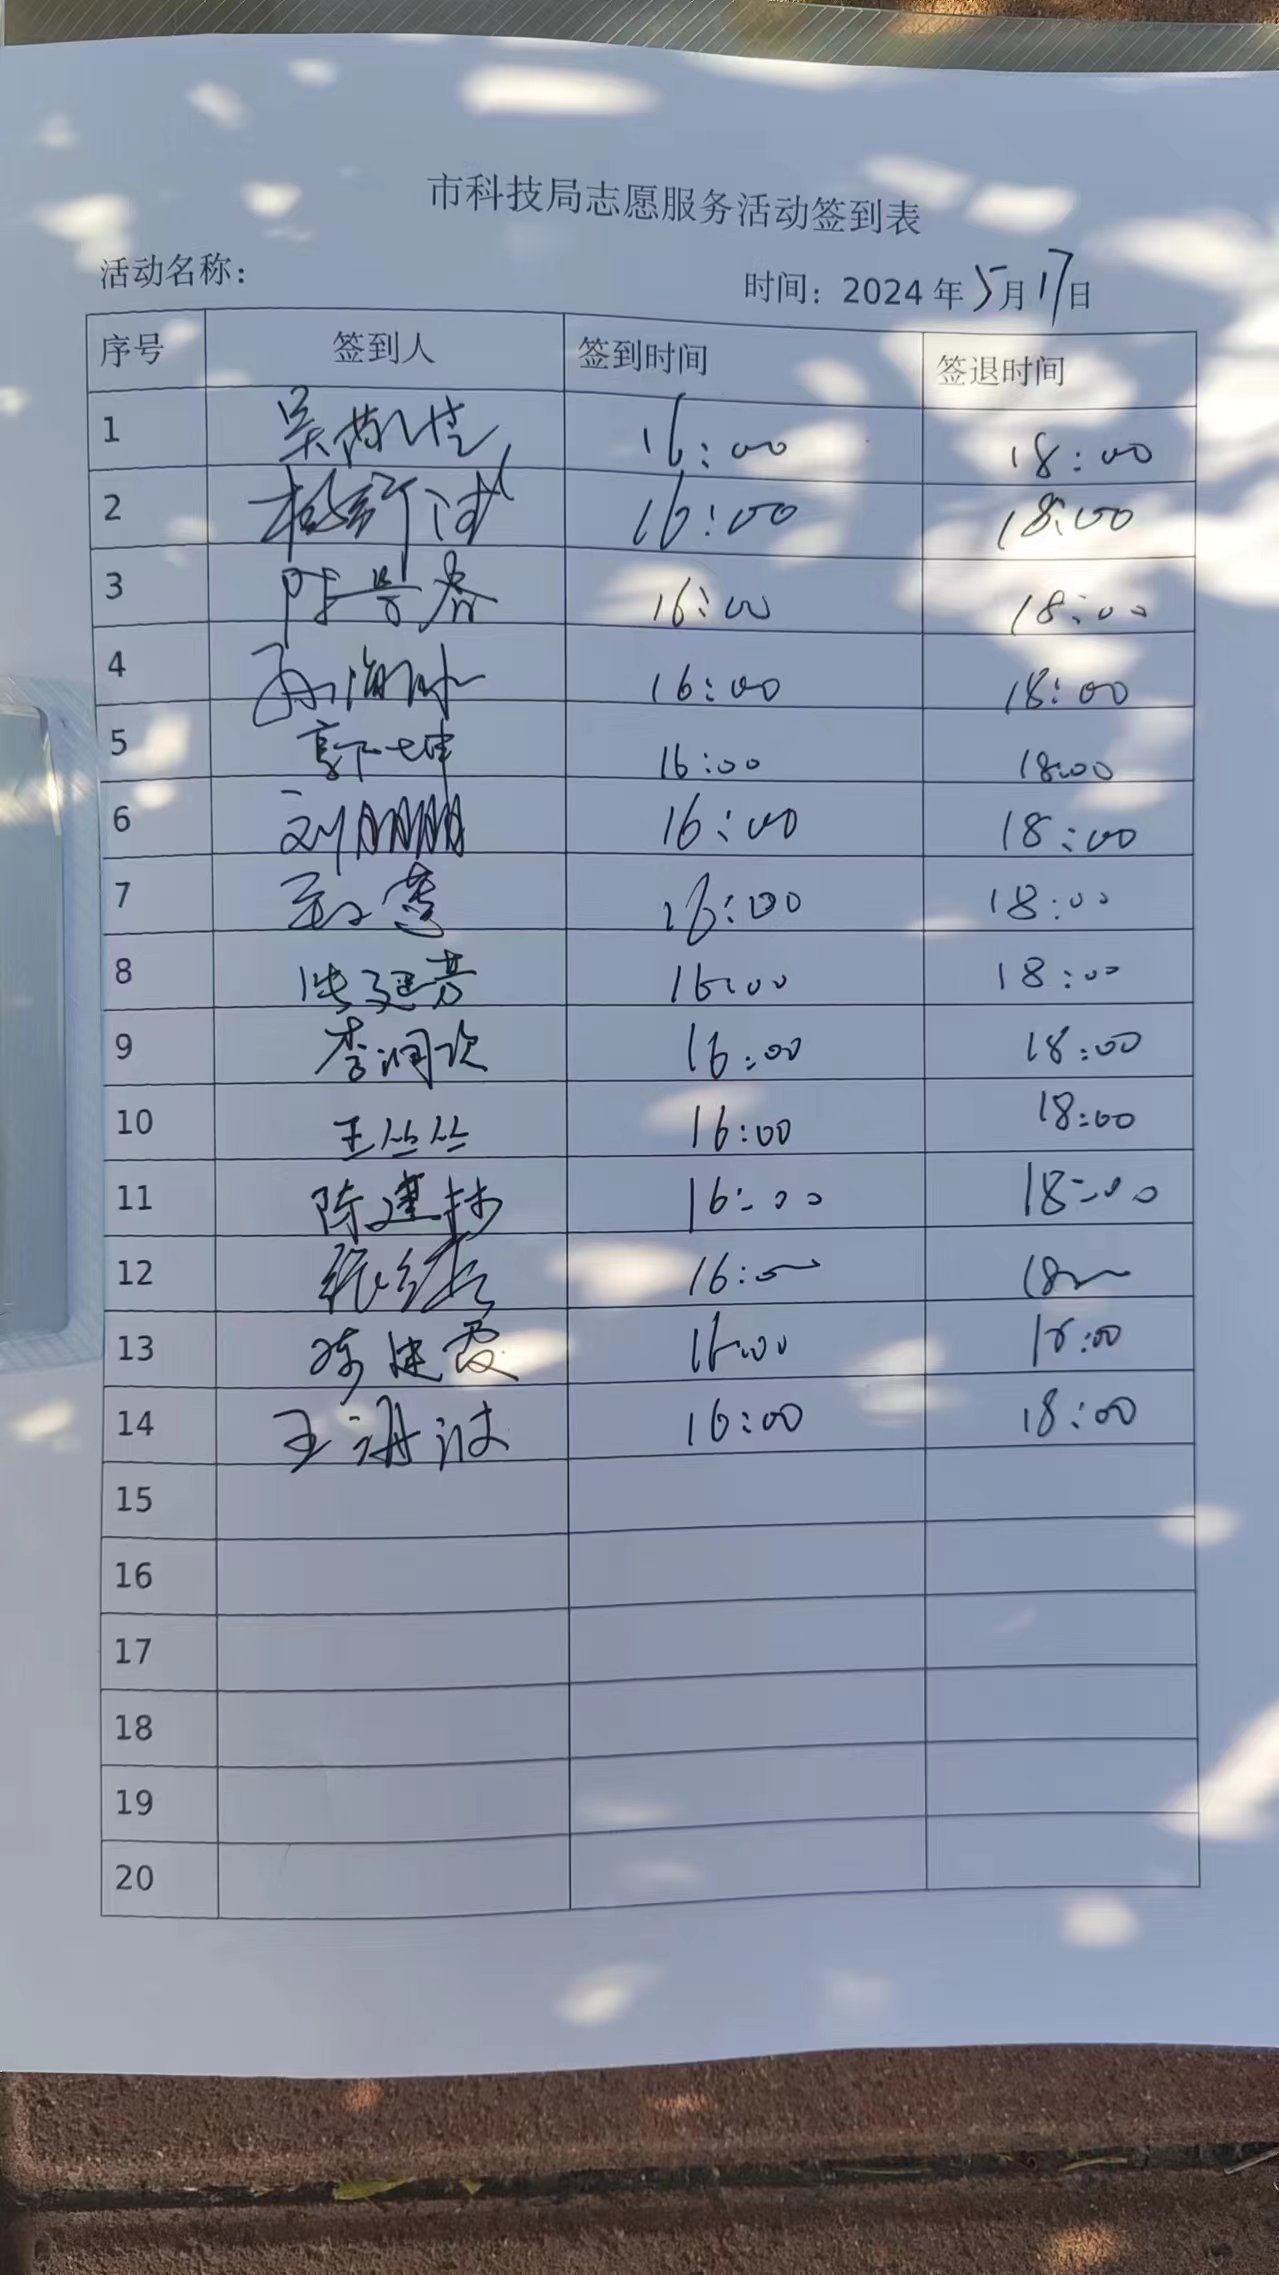 市科技局志愿服务活动签到表
活动名称： 时间：2024 年 5 月 17 日
序号 签到人 签到时间 签退时间
1 16:00 18:00
2 16:00 18:00
3 16:00 18:00
4 16:00 18:00
5 郭坤 16:00 18:00
6 刘朋朋 16:00 18:00
7 16:00 18:00
8 16:00 18:00
9 李润欣 16:00 18:00
10 王丛丛 16:00 18:00
11 陈建 16:00 18:00
12 张 16:00 18:00
13 陈建霞 16:00 18:00
14 王 16:00 18:00
15
16
17
18
19
20